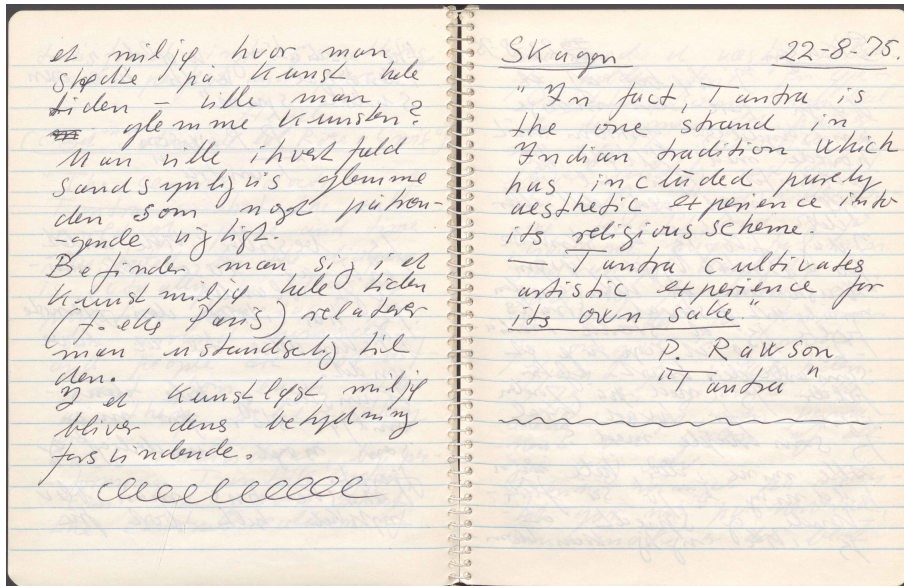 et miljø hvor man
stødte på kunst hele
tiden – ville man
glemme kunsten?
Man ville ihvert fald
sandsynligvis glemme
den som noget påtræn-
-gende vigtigt.
Befinder man sig i et
kunstmiljø hele tiden
(f.eks Paris) relaterer
man ustandselig til
den.
I et kunstløst miljø
bliver dens betydning
forsvindende.
Skagen 22-8-75.
"In fact, Tantra is
the one strand in
Indian tradition which
has included purely
aesthetic experience into
its religious scheme.
— Tantra cultivates
artistic experience for
its own sake."
P. Rawson
"Tantra"